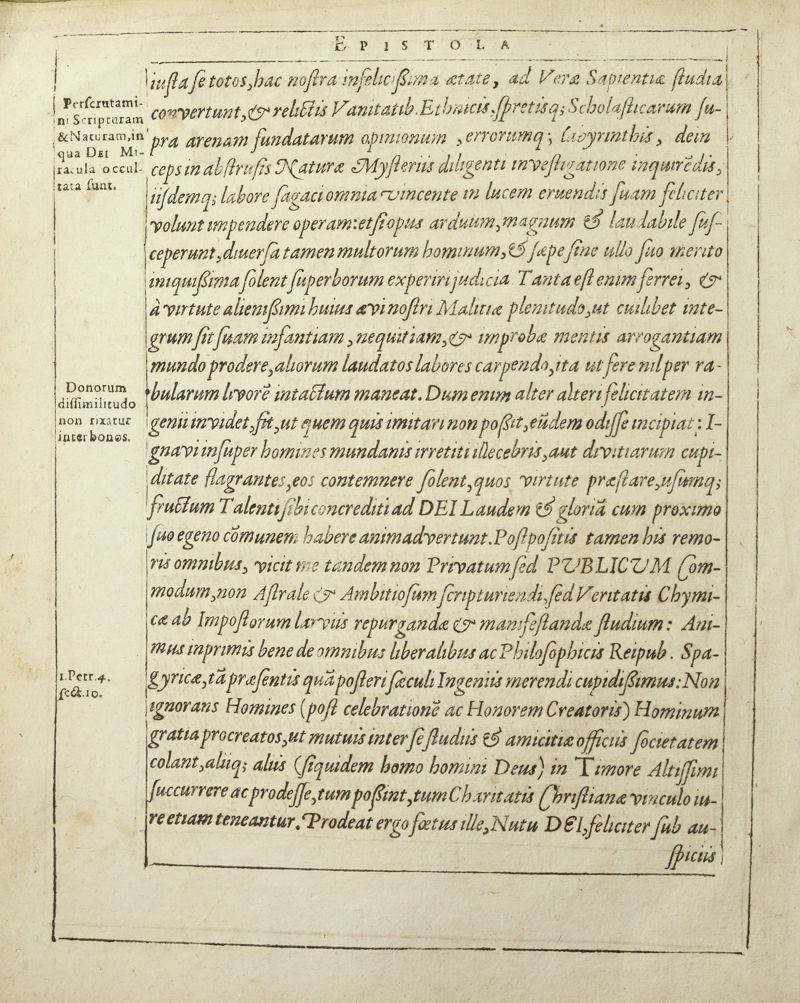 EPISTOLA
Perscrutami-
ni Scripturam
& Naturam, in
qua DEI Mi-
racula occul-
tata sunt.
iusta se totos, hac nostra infelicißima ætate, ad Veræ Sapientiæ studia
convertunt, & relictis Vanitatib. Ethnicis, spretisq; Scholasticarum su-
pra arenam fundatarum opinionum, errorumq; Labyrinthis, dein
ceps in abstrusis Naturæ Mysteriis diligenti investigatione inquirēdis,
iisdemq; labore sagaci omnia vincente in lucem eruendis suam feliciter
volunt impendere operam: et si opus arduum, magnum & laudabile sus-
ceperunt, diversa tamen multorum hominum, & sæpe sine ullo suo merito
iniquißima solent superborum experiri judicia. Tanta est enim ferrei, &
à virtute alienißimi huius ævi nostri Malitiæ plenitudo, ut cuilibet inte-
grum sit suam infantiam, nequitiam, & improbæ mentis arrogantiam
mundo prodere, aliorum laudatos labores carpendo, ita ut fere nil per ra-
Donorum
dissimilitudo
non rixatur
inter bonos.
bularum livorē intactum maneat. Dum enim alter alteri felicitatem in-
genii invidet, fit, ut quem quis imitari non poßit, eūdem odisse incipiat: I-
gnavi insuper homines mundanis irretiti illecebris, aut divitiarum cupi-
ditate flagrantes, eos contemnere solent, quos virtute præstare, usumq;
fructum Talenti sibi concrediti ad DEI Laudem & gloriā cum proximo
suo egeno cōmunem habere animadvertunt. Postpositis tamen his remo-
ris omnibus, vicit me tandem non Privatum sed PUBLICUM Com-
modum, non Astrale & Ambitiosum scripturiendi, sed Veritatis Chymi-
cæ ab Impostorum larviis repurgandæ & manifestandæ studium: Ani-
mus inprimis bene de omnibus liberalibus ac Philosophicis Reipub. Spa-
1. Petr. 4.
sect. 10.
gyricæ, tā præsentis quā posteri sæculi Ingeniis merendi cupidißimus: Non
ignorans Homines (post celebrationē ac Honorem Creatoris) Hominum
gratia procreatos, ut mutuis inter se studiis & amicitiæ officiis societatem
colant, aliiq; aliis (siquidem homo homini Deus) in Timore Altissimi
succurrere ac prodesse, tum poßint, tum Charitatis Christianæ vinculo iu-
re etiam teneantur. Prodeat ergo fœtus ille, Nutu DEI, feliciter sub au-
spiciis